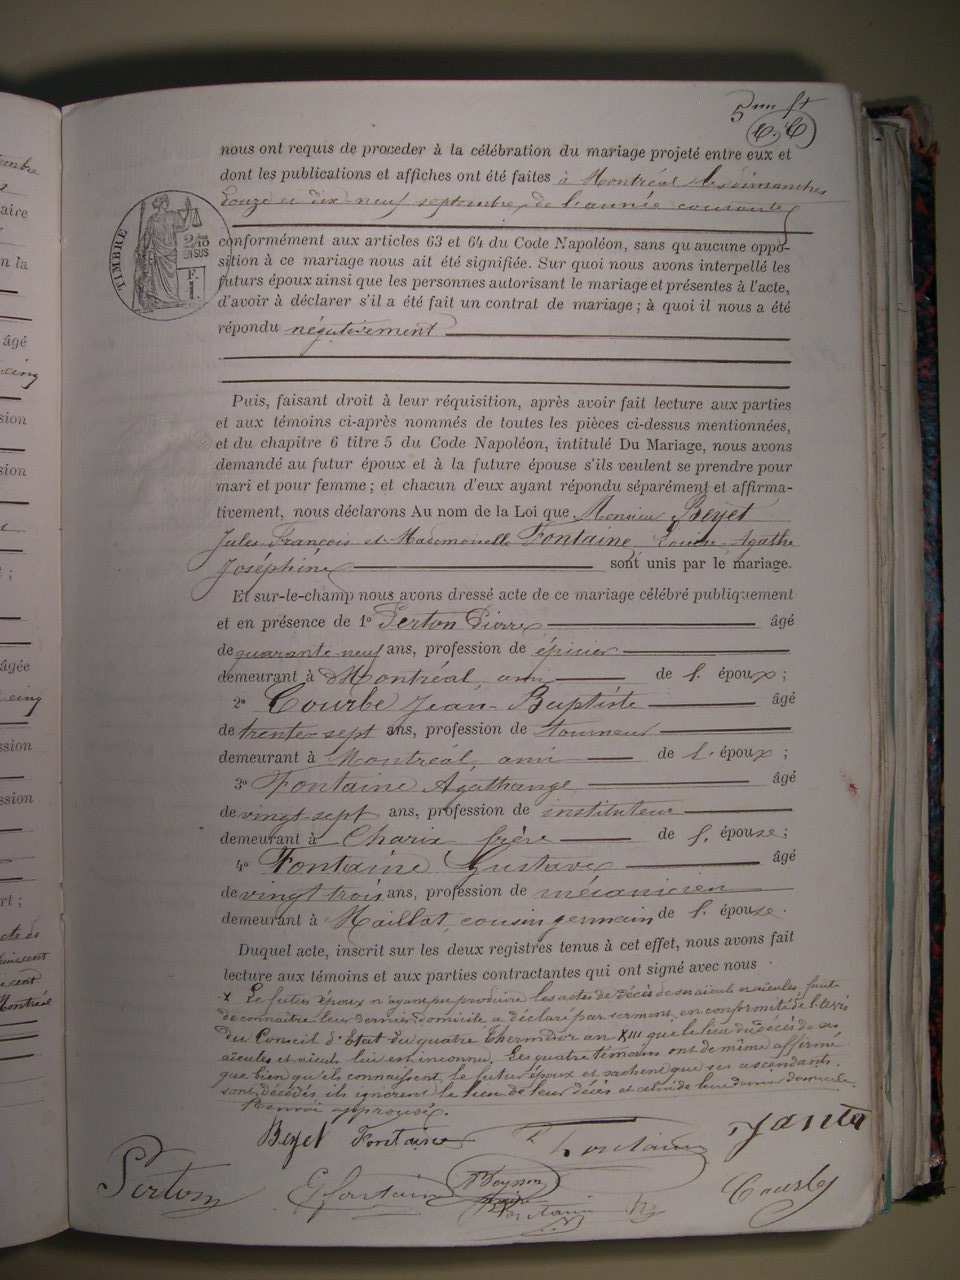 5
nous ont requis de procéder à la célébration du mariage projeté entre eux et
dont les publications et affiches ont été faites à Montréal les dimanches
douze et dix-neuf septembre de l'année courante
TIMBRE
2/10
EN SUS
F.
1
conformément aux articles 63 et 64 du Code Napoléon, sans qu'aucune oppo-
sition à ce mariage nous ait été signifiée. Sur quoi nous avons interpellé les
futurs époux ainsi que les personnes autorisant le mariage et présentes à l'acte,
d'avoir à déclarer s'il a été fait un contrat de mariage ; à quoi il nous a été
répondu négativement
Puis, faisant droit à leur réquisition, après avoir fait lecture aux parties
et aux témoins ci-après nommés de toutes les pièces ci-dessus mentionnées,
et du chapitre 6 titre 5 du Code Napoléon, intitulé Du Mariage, nous avons
demandé au futur époux et à la future épouse s'ils veulent se prendre pour
mari et pour femme ; et chacun d'eux ayant répondu séparément et affirma-
tivement, nous déclarons Au nom de la Loi que Monsieur Beyet
Jules François et Mademoiselle Fontaine Louise Agathe
Joséphine sont unis par le mariage.
Et sur-le-champ nous avons dressé acte de ce mariage célébré publiquement
et en présence de 1º Perton Pierre âgé
de quarante neuf ans, profession de épicier
demeurant à Montréal, ami de l'époux ;
2º Courbe Jean-Baptiste âgé
de trente-sept ans, profession de tourneur
demeurant à Montréal, ami de l'époux ;
3º Fontaine Agathange âgé
de vingt-sept ans, profession de instituteur
demeurant à Charix frère de l'épouse ;
4º Fontaine Gustave âgé
de vingt trois ans, profession de mécanicien
demeurant à Maillat, cousin germain de l'épouse.
Duquel acte, inscrit sur les deux registres tenus à cet effet, nous avons fait
lecture aux témoins et aux parties contractantes qui ont signé avec nous
x Le futur époux n'ayant pu produire les actes de décès de ses aïeuls et aïeules, faute
de connaître leur dernier domicile a déclaré par serment, en conformité de l'avis
du Conseil d'Etat du quatre thermidor an XIII que le lieu du décès de ses
aïeules et aïeuls lui est inconnu. Les quatre témoins ont de même affirmé
que bien qu'ils connaissent le futur époux et sachent que ses ascendants
sont décédés, ils ignorent le lieu de leur décès et celui de leur dernier domicile.
Renvoi approuvé.
Beyet Fontaine Fontaine Janta
Perton G fontaine Courbe